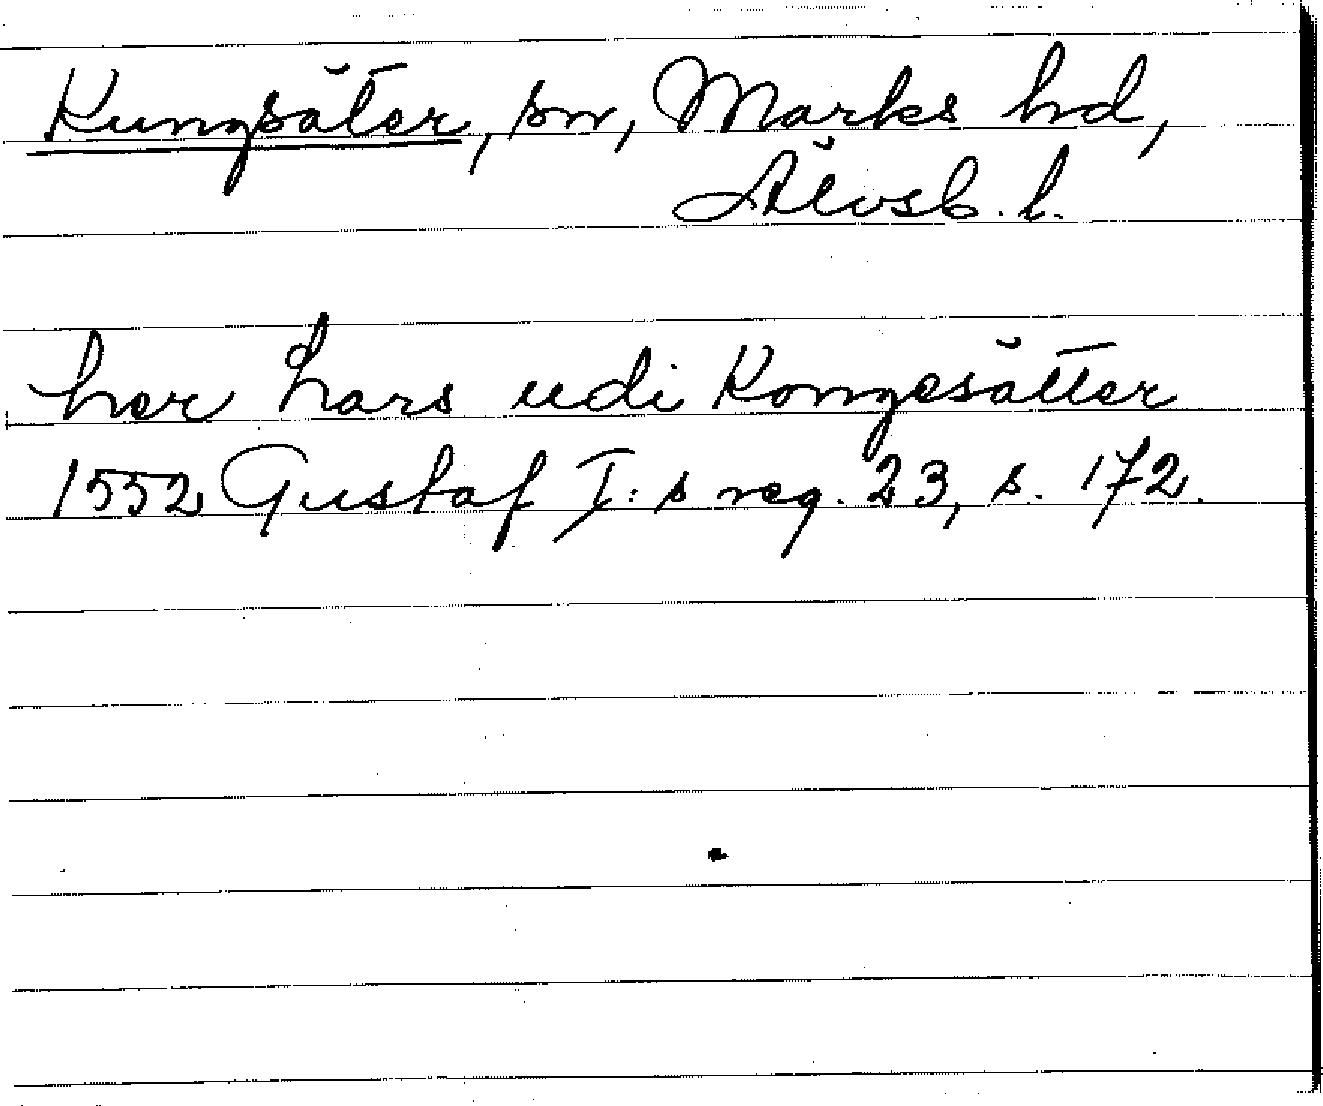 Kungsäter, sn, Marks hd,
Älvsb. l.
her Lars udi Kongesätter
1552 Gustaf I:s reg. 23, s. 172.